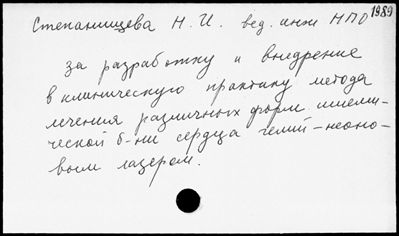 Степанищева Н. И. вед. инж НПО 1989
за разработку и внедрение
в клиническую практику метода
лечения различных форм ишеми-
ческой б-ни сердца гелий-неоно-
вым лазером.